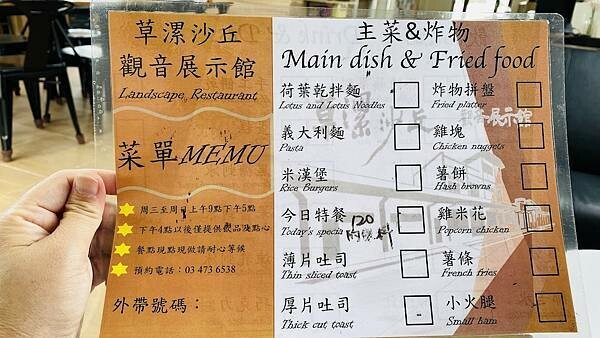 草漯沙丘
觀音展示館
Landscape Restaurant
菜單MEMU
周三至周日上午9點下午5點
下午4點以後僅提供飲品及點心
餐點現點現做請耐心等候
預約電話：03 473 6538
外帶號碼：
主菜&炸物
Main dish & Fried food
荷葉乾拌麵
Lotus and Lotus Noodles
義大利麵
Pasta
米漢堡
Rice Burgers
今日特餐 120
Today's specia
薄片吐司
Thin sliced toast
厚片吐司
Thick cut toast
炸物拼盤
Fried platter
雞塊
Chicken nuggets
薯餅
Hash browns
雞米花
Popcorn chicken
薯條
French fries
小火腿
Small ham